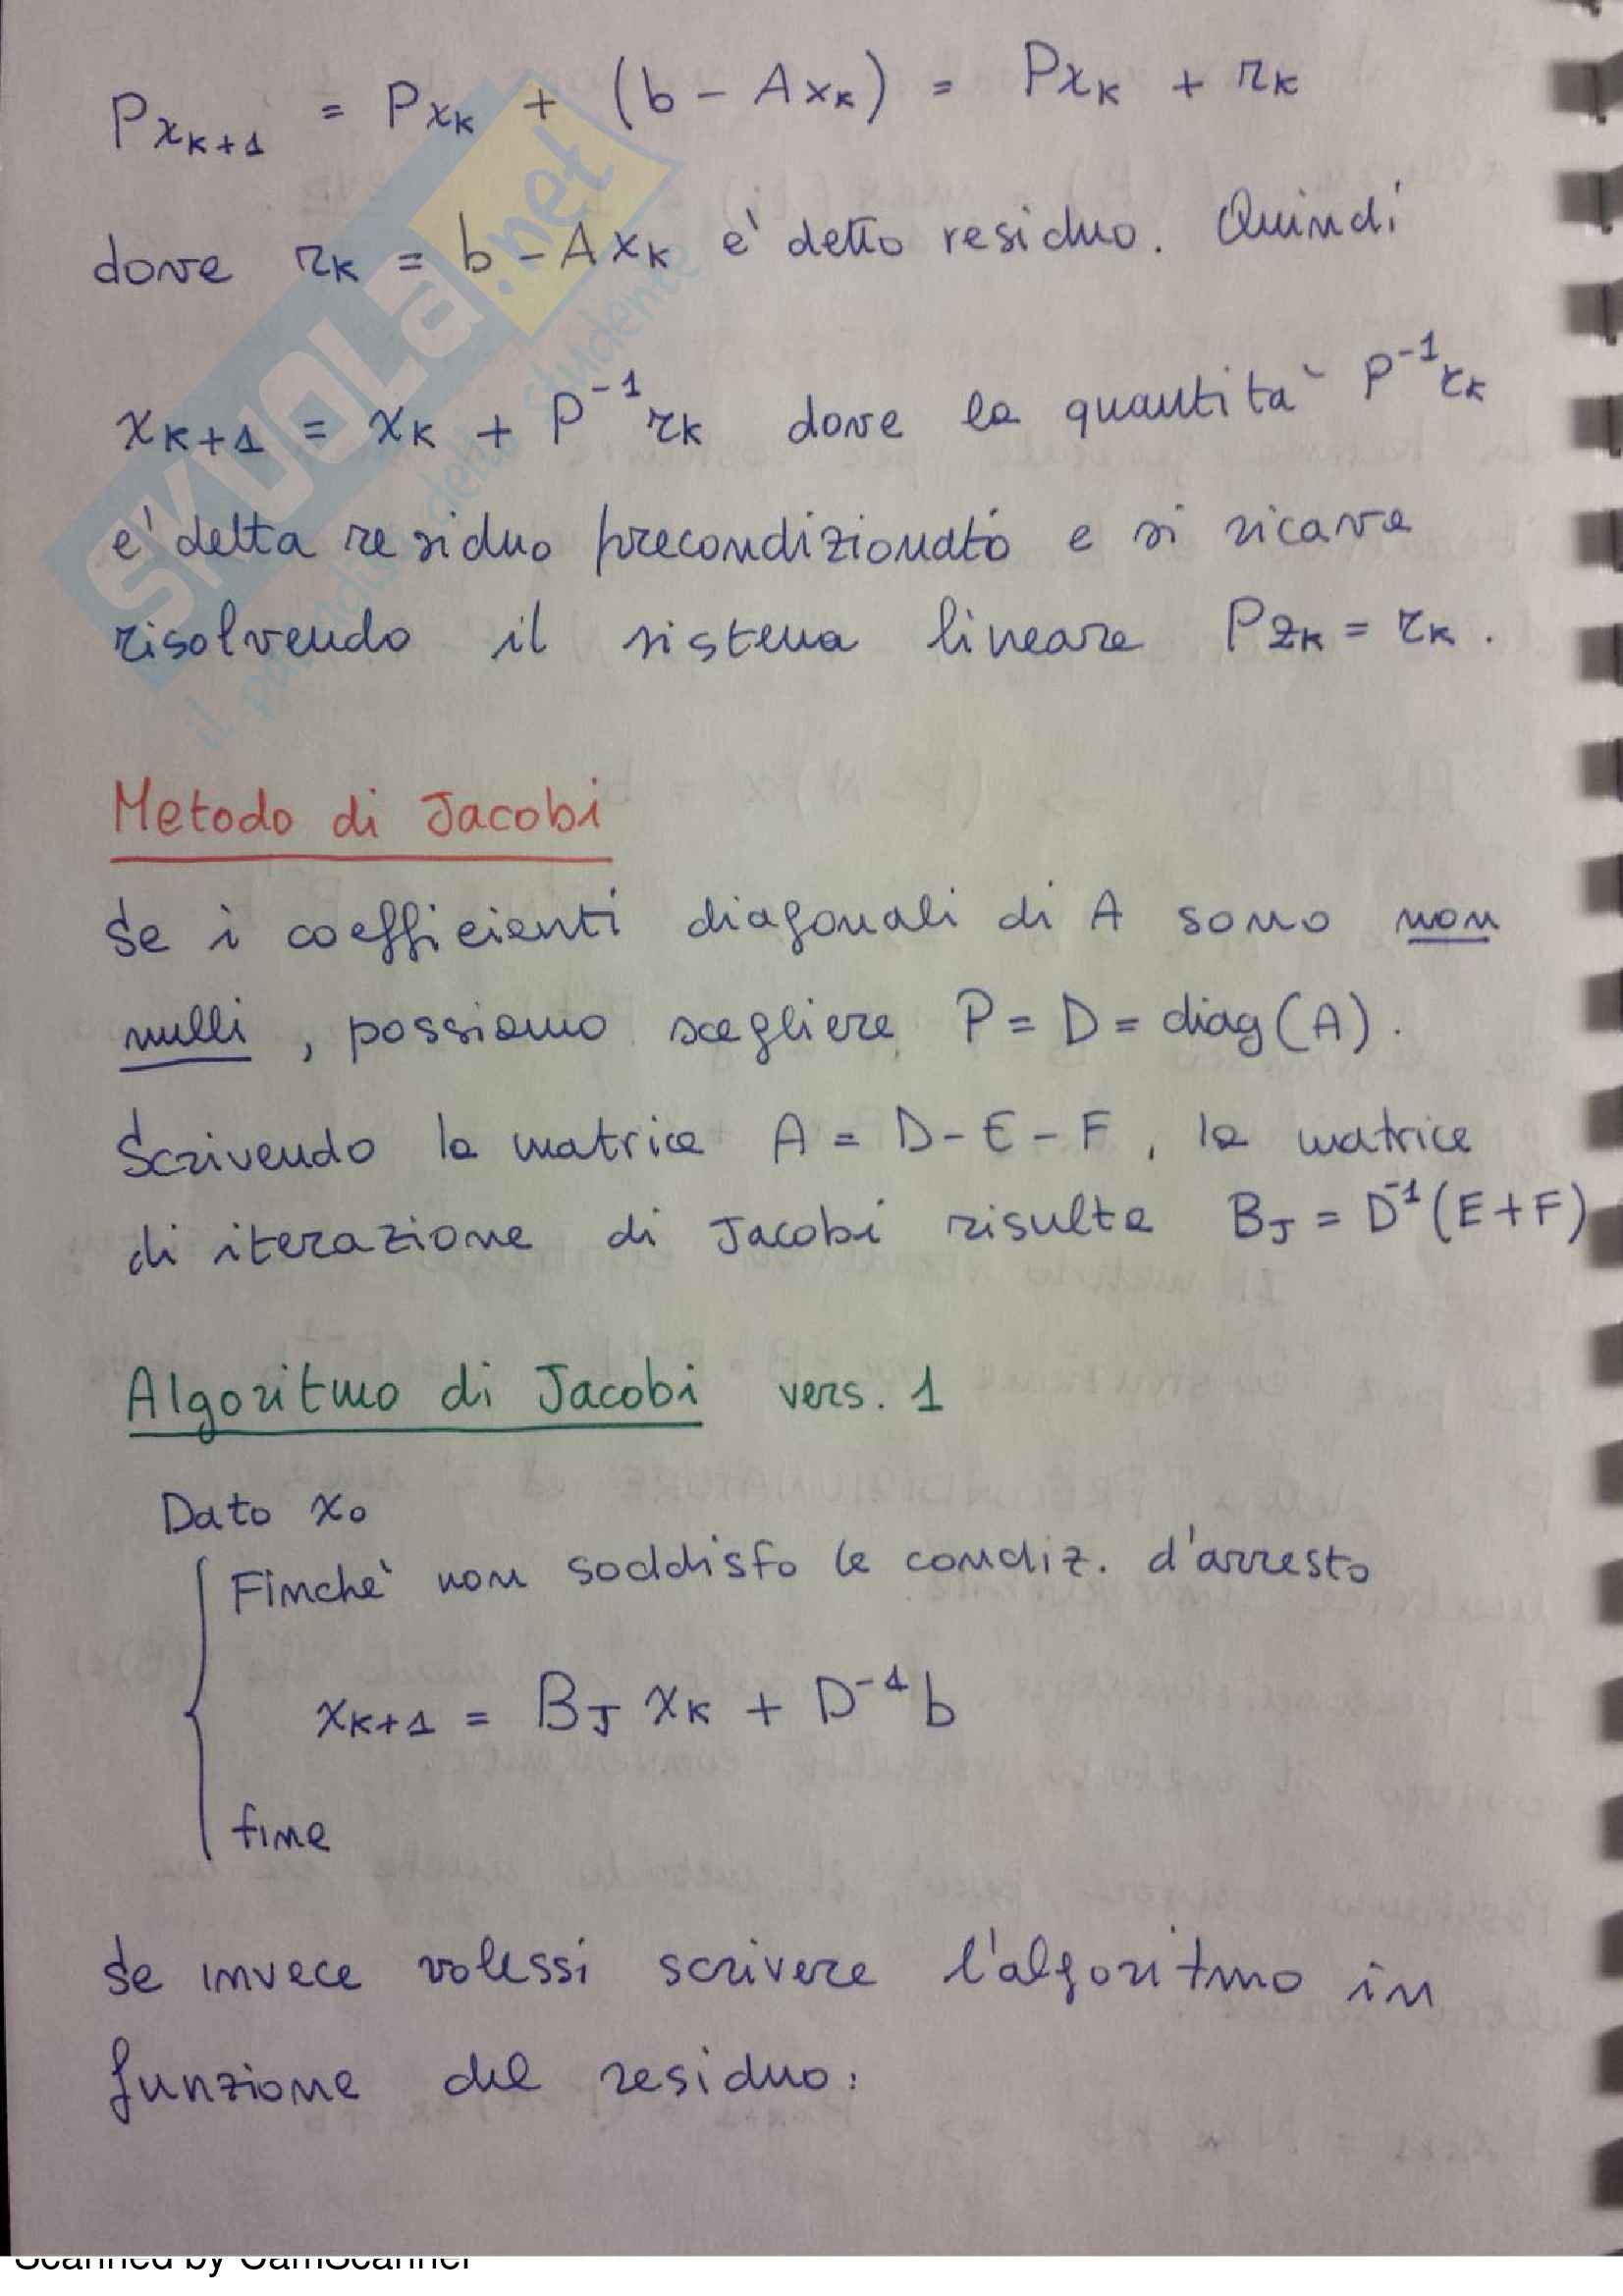 Px_{k+1} = Px_k + (b - Ax_k) = Px_k + r_k
dove r_k = b - Ax_k e' detto residuo. Quindi
x_{k+1} = x_k + P^{-1} r_k dove la quantita` P^{-1} r_k
e' detta residuo precondizionato e si ricava
risolvendo il sistema lineare Pz_k = r_k.
Metodo di Jacobi
Se i coefficienti diagonali di A sono non
nulli, possiamo scegliere P = D = diag(A).
Scrivendo la matrice A = D - E - F, la matrice
di iterazione di Jacobi risulta B_J = D^{-1}(E+F)
Algoritmo di Jacobi vers. 1
Dato x_0
Finche` non soddisfo le condiz. d'arresto
x_{k+1} = B_J x_k + D^{-1} b
fine
Se invece volessi scrivere l'algoritmo in
funzione del residuo:
SKUOLA.net
il paradiso dello studente
Scanned by CamScanner